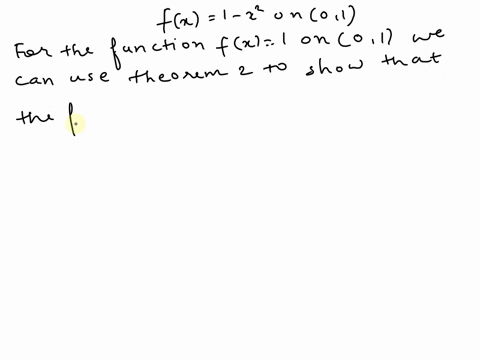 f(x) = 1 - x² on (0,1)
For the function f(x) = 1 on (0,1) we
can use theorem 2 to show that
the f